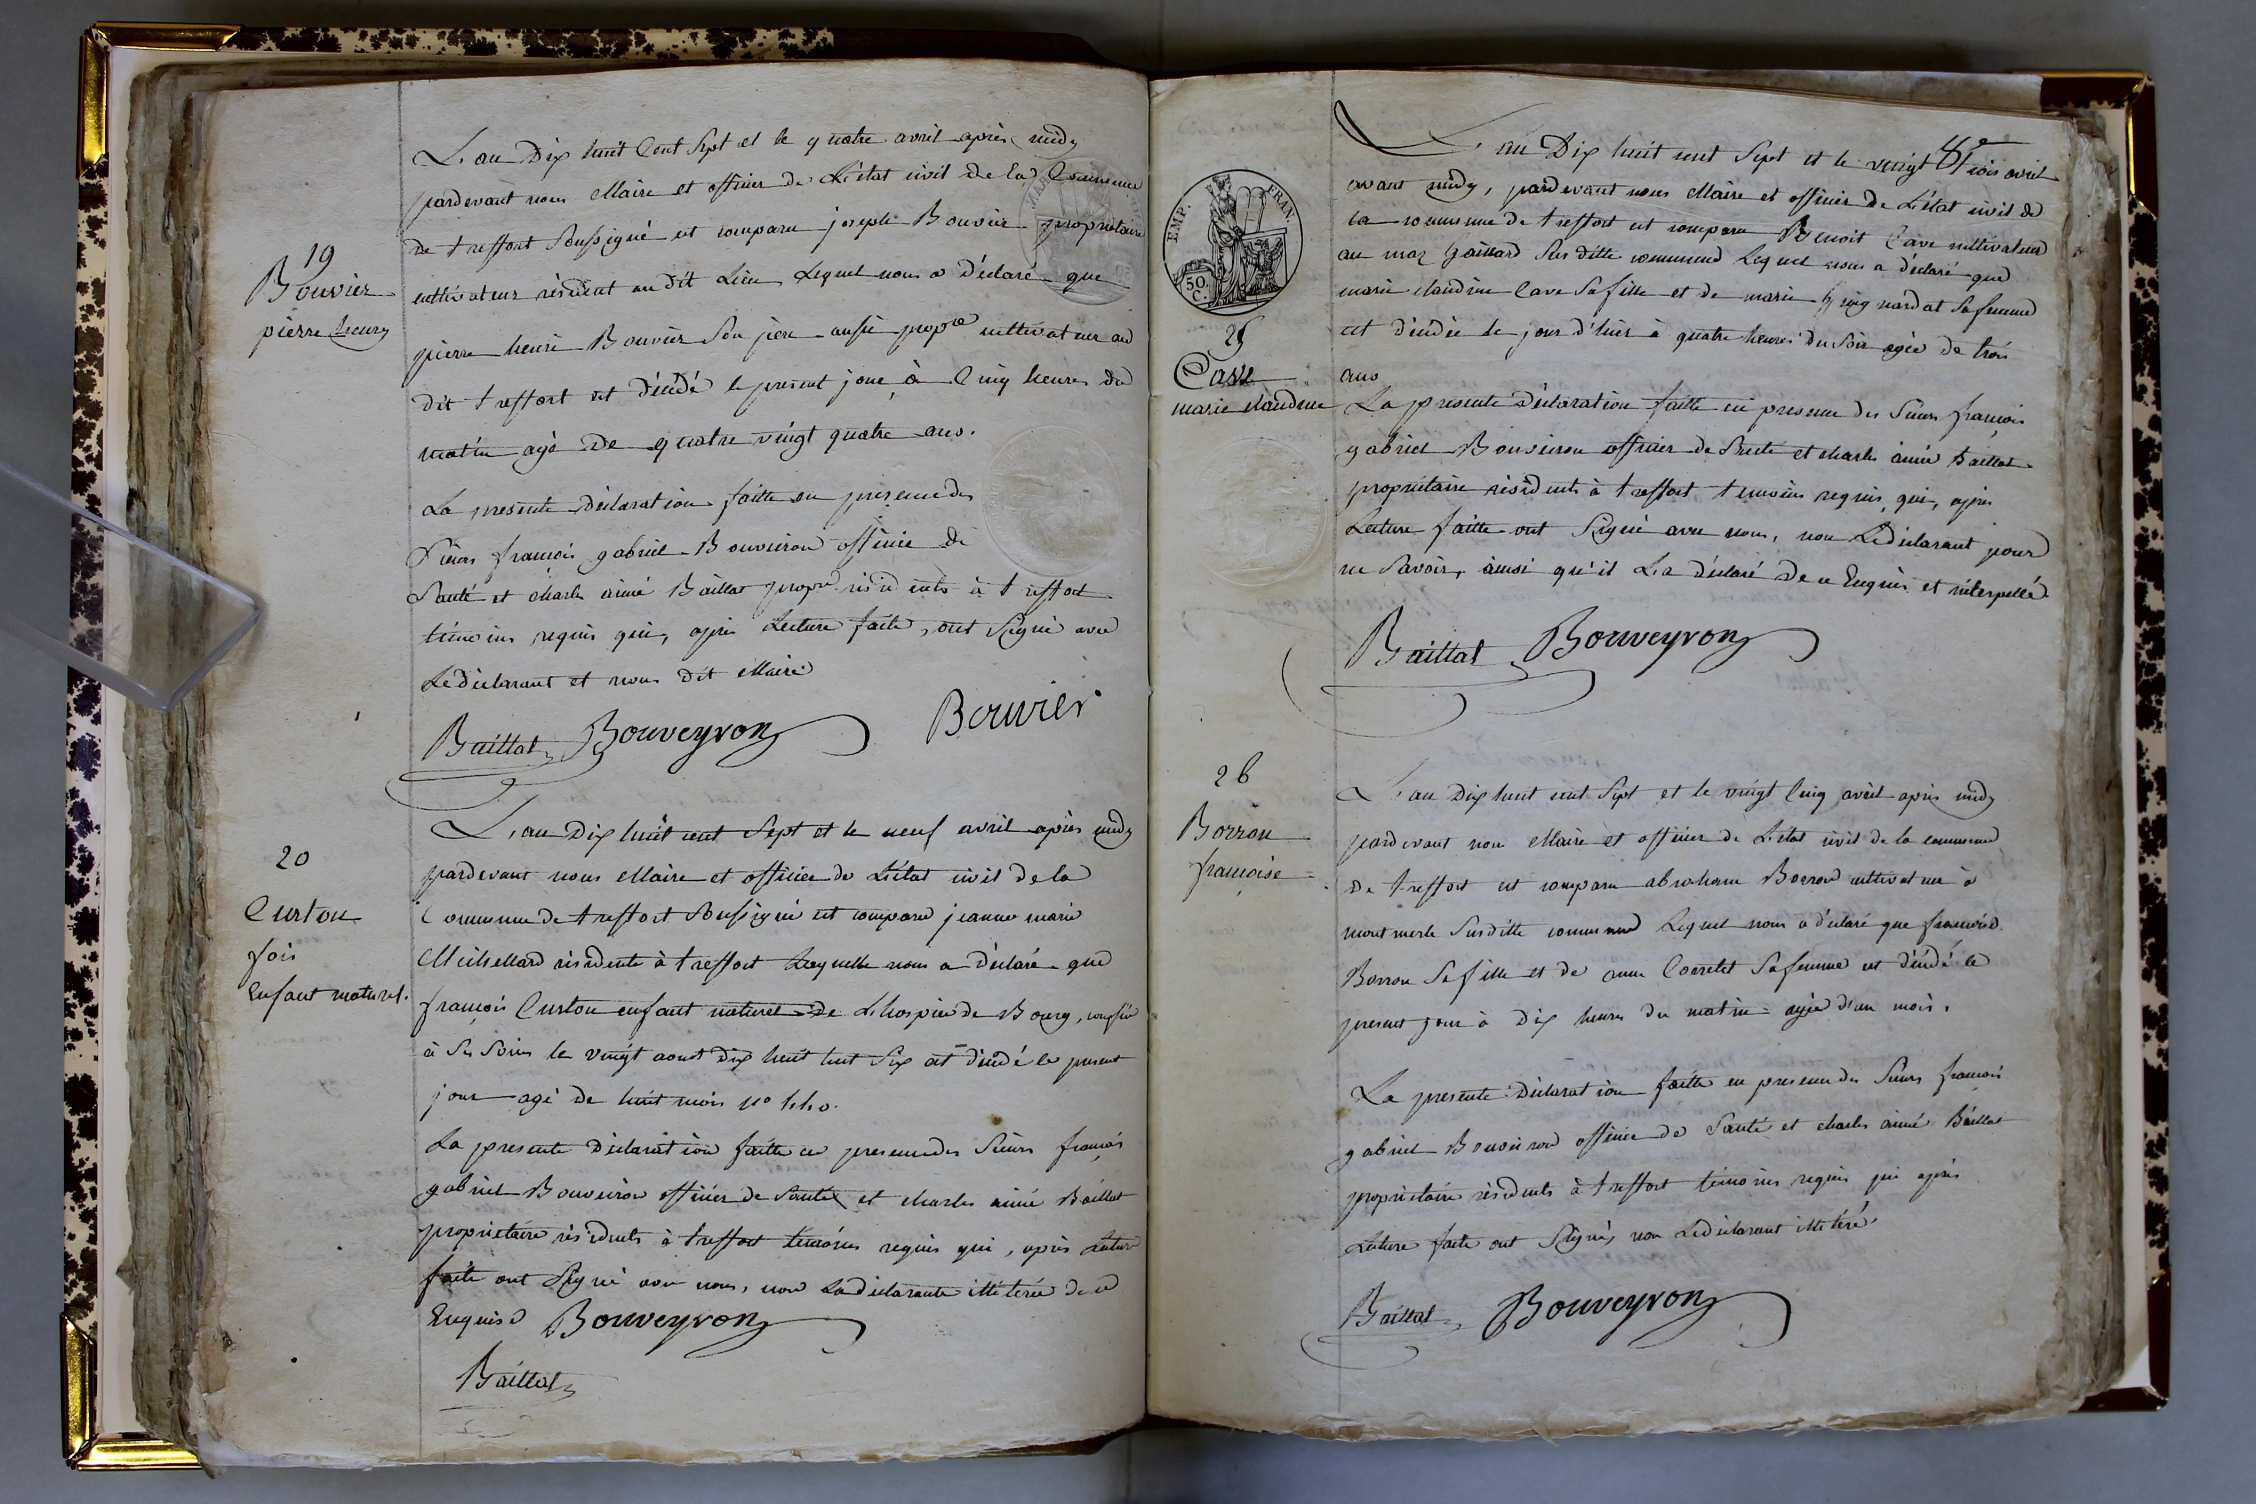 19
Bouvier
pierre henry
L'an Dix huit Cent Sept et le quatre avril après midy
pardevant nous Maire et officier de L'état civil de la Commune
de treffort Soussigné est comparu joseph Bouvier propriétaire
cultivateur résident au dit Lieu Lequel nous a déclaré que
pierre henri Bouvier Son père aussi propre cultivateur au
dit treffort est décédé le present jour à Cinq heures du
matin agé de quatre vingt quatre ans.
La presente déclaration faitte en présence des
Sieurs françois gabriel Bouveiron officier de
Santé et charles aimé Baillat propre résidents à treffort
témoins requis qui, après Lecture faite, ont Signé avec
Le déclarant et nous dit Maire
Baillat Bouveyron Bouvier
20
Curton
fois
Enfant naturel.
L'an Dix huit cent Sept et le neuf avril après midy
pardevant nous Maire et officier de L'état civil de la
Commune de treffort Soussigné est comparu jeanne marie
résidente à treffort Laquelle nous a déclaré que
françois Curton enfant naturel de L'hospice de Bourg, confié
à Ses Soins le vingt aoust dix huit cent Six est décédé le present
jour agé de huit mois no
La presente déclaration faitte en presence des Sieurs françois
gabriel Bouveiron officier de Santé et charles aimé Baillat
propriétaire résidents à treffort temoins requis qui, après Lecture
faite ont Signé avec nous, non La déclarante illétérée de ce
Enquise Bouveyron
Baillat
EMP. FRAN.
50. C.
25
Cave
marie claudine
L'an Dix huit cent Sept et le vingt trois avril
avant midy, pardevant nous Maire et officier de L'état civil de
la commune de treffort est comparu Benoit Cave cultivateur
au maz Gaillard Sus ditte commune Lequel nous a déclaré que
marie claudine Cave Sa fille et de marie Sa femme
est décédée le jour d'hier à quatre heures du Soir agée de trois
ans
La presente déclaration faitte en presence des Sieurs françois
gabriel Bouveiron officier de Santé et charles aimé Baillat
propriétaire résidents à treffort temoins requis, qui, après
Lecture faitte ont Signé avec nous, non Le déclarant pour
ne Savoir, ainsi qu'il L'a déclaré de ce Enquis et interpellé
Baillat Bouveyron
26
Borron
françoise
L'an Dix huit cent Sept et le vingt Cinq avril après midy
pardevant nous Maire et officier de L'état civil de la commune
de treffort est comparu abraham Borron cultivateur à
montmerle Susditte commune Lequel nous a déclaré que françoise
Borron Sa fille et de anne Sa femme est décédé le
present jour à Dix heures du matin agée d'un mois.
La presente déclaration faitte en presence des Sieurs françois
gabriel Bouveiron officier de Santé et charles aimé Baillat
propriétaire résidents à treffort témoins requis qui après
Lecture faite ont Signé, non Le déclarant illétéré
Baillat Bouveyron